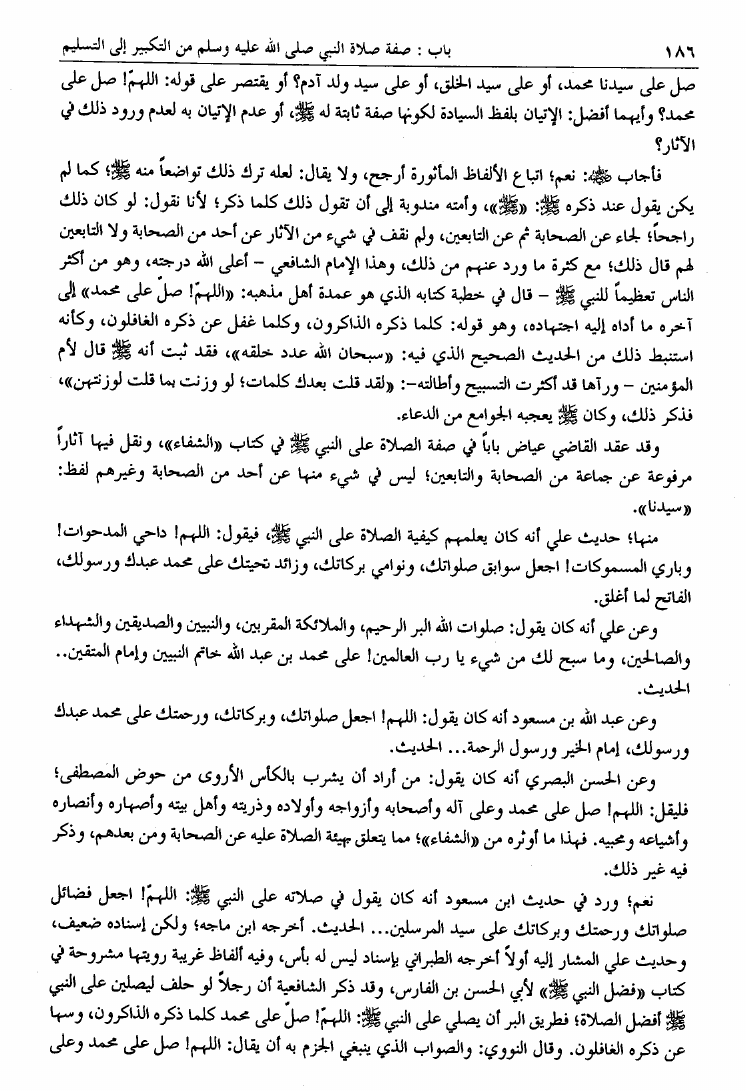 ١٨٦ باب : صفة صلاة النبي صلى الله عليه وسلم من التكبير إلى التسليم
صل على سيدنا محمد، أو على سيد الخلق، أو على سيد ولد آدم؟ أو يقتصر على قوله: اللهمّ! صل على
محمد؟ وأيهما أفضل: الإتيان بلفظ السيادة لكونها صفة ثابتة له ﷺ، أو عدم الإتيان به لعدم ورود ذلك في
الآثار؟
فأجاب رضي الله عنه: نعم؛ اتباع الألفاظ المأثورة أرجح، ولا يقال: لعله ترك ذلك تواضعاً منه ﷺ؛ كما لم
يكن يقول عند ذكره ﷺ: «ﷺ»، وأمته مندوبة إلى أن تقول ذلك كلما ذكر؛ لأنا نقول: لو كان ذلك
راجحاً؛ لجاء عن الصحابة ثم عن التابعين، ولم نقف في شيء من الآثار عن أحد من الصحابة ولا التابعين
لهم قال ذلك؛ مع كثرة ما ورد عنهم من ذلك، وهذا الإمام الشافعي – أعلى الله درجته، وهو من أكثر
الناس تعظيماً للنبي ﷺ – قال في خطبة كتابه الذي هو عمدة أهل مذهبه: «اللهمّ! صلّ على محمد» إلى
آخره ما أداه إليه اجتهاده، وهو قوله: كلما ذكره الذاكرون، وكلما غفل عن ذكره الغافلون، وكأنه
استنبط ذلك من الحديث الصحيح الذي فيه: «سبحان الله عدد خلقه»، فقد ثبت أنه ﷺ قال لأم
المؤمنين – ورآها قد أكثرت التسبيح وأطالته–: «لقد قلت بعدك كلمات؛ لو وزنت بما قلت لوزنتهن»،
فذكر ذلك، وكان ﷺ يعجبه الجوامع من الدعاء.
وقد عقد القاضي عياض باباً في صفة الصلاة على النبي ﷺ في كتاب «الشفاء»، ونقل فيها آثاراً
مرفوعة عن جماعة من الصحابة والتابعين؛ ليس في شيء منها عن أحد من الصحابة وغيرهم لفظ:
«سيدنا».
منها؛ حديث علي أنه كان يعلمهم كيفية الصلاة على النبي ﷺ، فيقول: اللهم! داحي المدحوات!
وباري المسموكات! اجعل سوابق صلواتك، ونوامي بركاتك، وزائد تحيتك على محمد عبدك ورسولك،
الفاتح لما أغلق.
وعن علي أنه كان يقول: صلوات الله البر الرحيم، والملائكة المقربين، والنبيين والصديقين والشهداء
والصالحين، وما سبح لك من شيء يا رب العالمين! على محمد بن عبد الله خاتم النبيين وإمام المتقين..
الحديث.
وعن عبد الله بن مسعود أنه كان يقول: اللهم! اجعل صلواتك، وبركاتك، ورحمتك على محمد عبدك
ورسولك، إمام الخير ورسول الرحمة... الحديث.
وعن الحسن البصري أنه كان يقول: من أراد أن يشرب بالكأس الأروى من حوض المصطفى؛
فليقل: اللهم! صل على محمد وعلى آله وأصحابه وأزواجه وأولاده وذريته وأهل بيته وأصهاره وأنصاره
وأشياعه ومحبيه. فهذا ما أوثره من «الشفاء»؛ مما يتعلق بهيئة الصلاة عليه عن الصحابة ومن بعدهم، وذكر
فيه غير ذلك.
نعم؛ ورد في حديث ابن مسعود أنه كان يقول في صلاته على النبي ﷺ: اللهمّ! اجعل فضائل
صلواتك ورحمتك وبركاتك على سيد المرسلين... الحديث. أخرجه ابن ماجه؛ ولكن إسناده ضعيف،
وحديث علي المشار إليه أولاً أخرجه الطبراني بإسناد ليس له بأس، وفيه ألفاظ غريبة رويتها مشروحة في
كتاب «فضل النبي ﷺ» لأبي الحسن بن الفارس، وقد ذكر الشافعية أن رجلاً لو حلف ليصلين على النبي
ﷺ أفضل الصلاة؛ فطريق البر أن يصلي على النبي ﷺ: اللهمّ! صلّ على محمد كلما ذكره الذاكرون، وسها
عن ذكره الغافلون. وقال النووي: والصواب الذي ينبغي الجزم به أن يقال: اللهم! صل على محمد وعلى